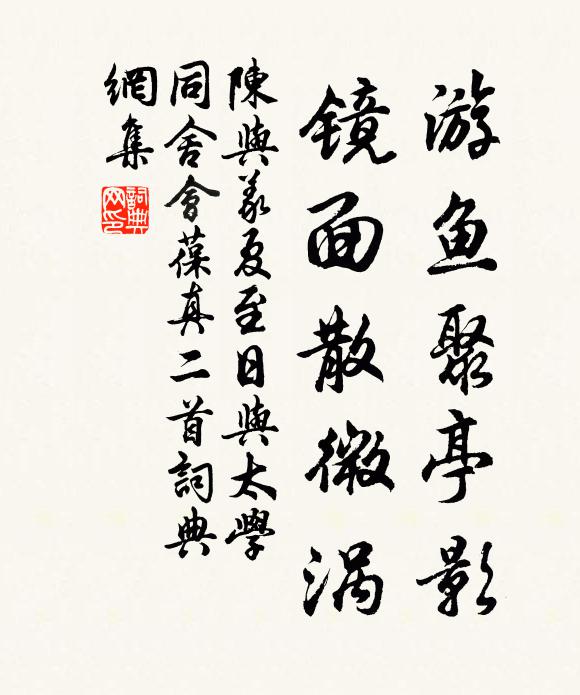 游鱼聚亭影
镜面散微涡
陳與義夏至日與太學
同舍會葆真二首詞典
網集
詞典网印